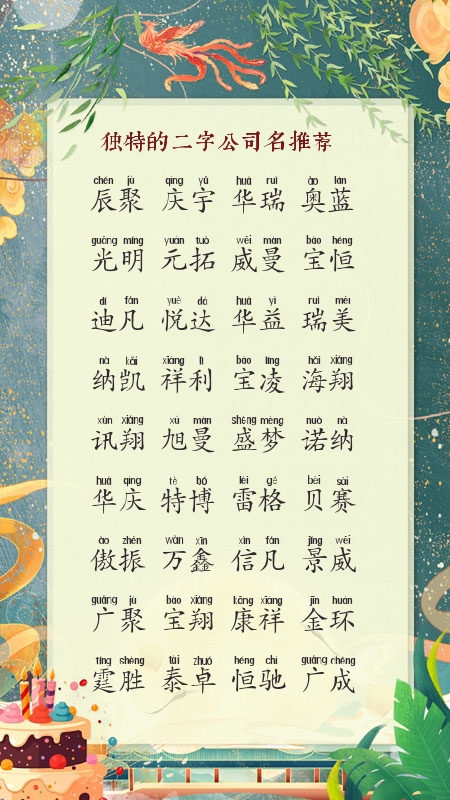 独特的二字公司名推荐
chén jù qìng yǔ huá ruì ào lán
辰聚 庆宇 华瑞 奥蓝
guāng míng yuán tuò wēi màn bǎo héng
光明 元拓 威曼 宝恒
dí fán yuè dá huá yì ruì měi
迪凡 悦达 华益 瑞美
nà kǎi xiáng lì bǎo líng hǎi xiáng
纳凯 祥利 宝凌 海翔
xùn xiáng xù màn shèng mèng nuò nà
讯翔 旭曼 盛梦 诺纳
huá qìng tè bó léi gé bèi sài
华庆 特博 雷格 贝赛
ào zhèn wàn xīn xìn fán jǐng wēi
傲振 万鑫 信凡 景威
guǎng jù bǎo xiáng kāng xiáng jīn huán
广聚 宝翔 康祥 金环
tíng shèng tài zhuó héng chí guǎng chéng
霆胜 泰卓 恒驰 广成